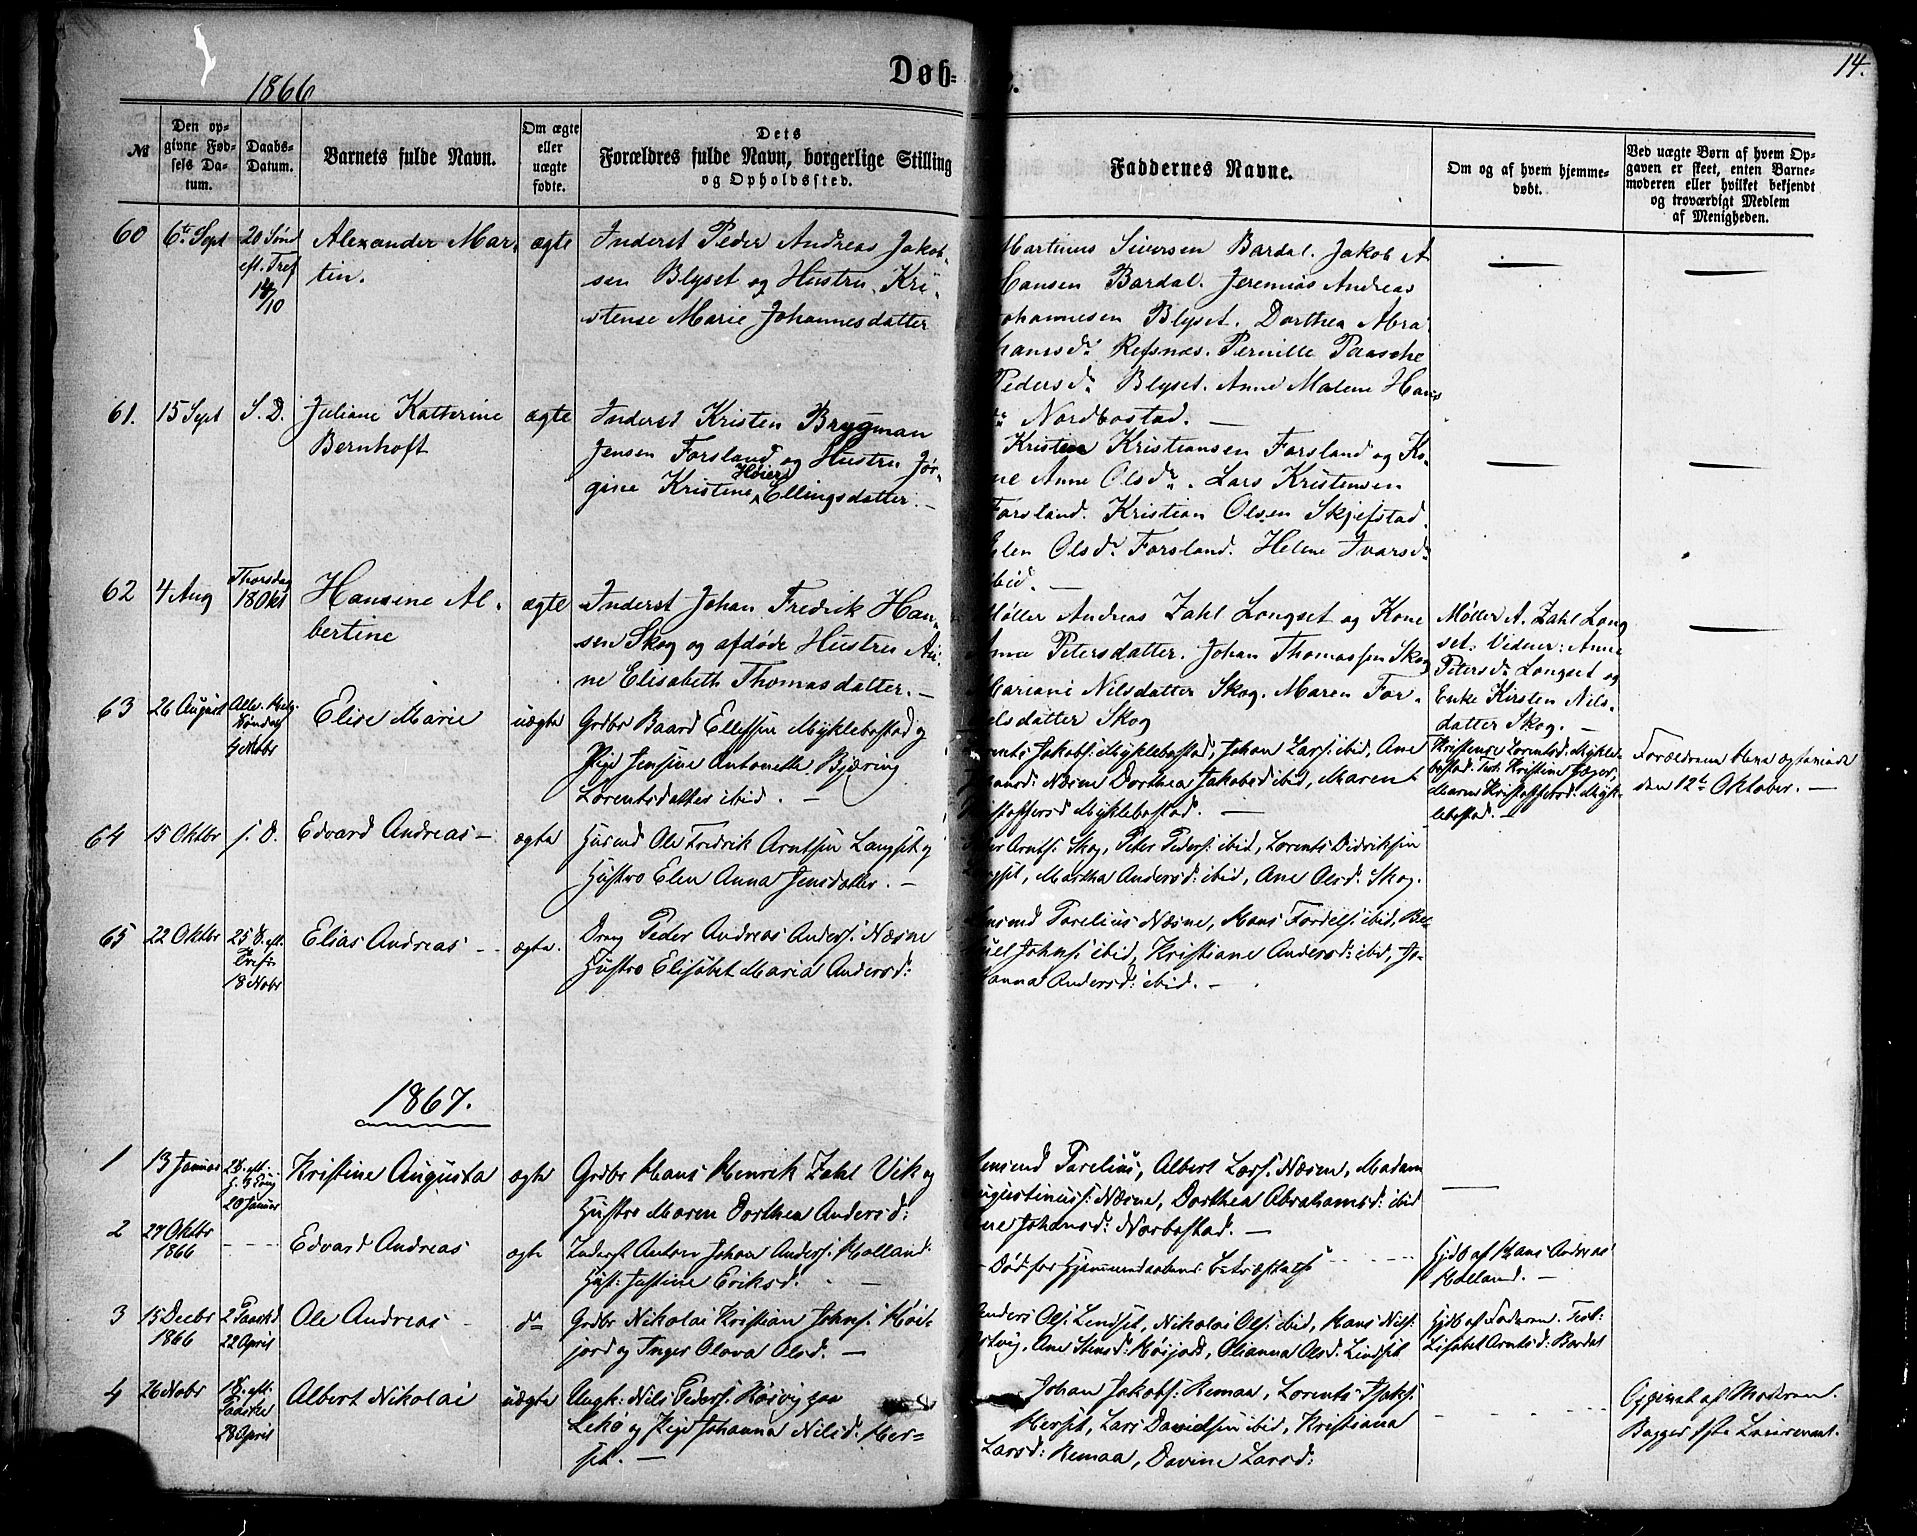 1866
Døb=
14.
№
Den op-
givne Fød-
sels Da-
tum.
Daabs-
Datum.
Barnets fulde Navn.
Om ægte
eller
uægte
fødte.
Dets
Forældres fulde Navn, borgerlige Stilling
og Opholdssted.
Faddernes Navne.
Om og af hvem hjemme-
døbt.
Ved uægte Børn af hvem Op-
gaven er skeet, enten Barne-
moderen eller hvilket bekjendt
og troværdigt Medlem
af Menigheden.
60
6te Sept
20 Sønd
eft. Tref
14/10
Alexander Mar-
tin.
ægte
Inderst Peder Andreas Jakob-
sen Blyset og Hustru Kri-
stense Marie Johannesdatter
Martinus Siversen Bardal. Jakob A
Hansen Bardal. Jeremias Andreas
Johannesen Blyset. Dorthea Abra-
hamsdr Refsnes. Pernille Paasche
Pedersdr Blyset. Anne Malene Hans
dr Nordbostad. —
61.
15 Sept
S. D.
Juliane Katherine
Bernhoft
ægte
Inderst Kristen Brygman
Jensen Forsland og Hustru Jør-
gine Kristine Høier Ellingsdatter. —
Kristen Kristiansen Forsland og Ko-
ne Anne Olsdr. Lars Kristensen
Forsland. Kristian Olsen Skjefstad.
Elen Olsdr Forsland. Helene Ivarsdr
ibid. —
62
4 Aug
Thorsdag
18 Okt
Hansine Al-
bertine
ægte
Inderst Johan Fredrik Han-
sen Skog og afdøde Hustru An-
ne Elisabeth Thomasdatter. —
Møller Andreas Zahl Longset og Kone
Anna Petersdatter. Johan Thomassen Skog
Mariane Nilsdatter Skog. Maren For-
delsdatter Skog
Møller A. Zahl Long
set. Vidner: Anne
Petersdr Longset og
Enke Kirsten Nils-
datter Skog. —
63
26 August
Alle Helg.
Søndag
4 Novbr
Elise Marie
uægte
Grdbr Baard Ellefsen Myklebostad og
Pige Jensine Antonette Bjæring
Lorentsdatter ibid. —
Lorents Jakobs: Myklebostad, Johan Lars: ibid, Ane
Næsne Dorthea Jakobsd ibid, Maren
Kristoffersd Myklebostad. —
Kristense Lorentsd: Mykle-
bostad. Test: Kristine
Maren Kristoffersd: Myk-
lebostad. —
Forældrene
den 12te Oktober. —
64
15 Oktbr
s. D.
Edvard Andreas —
ægte
Husmd Ole Fredrik Arntsen Langset og
Hustro Elen Anna Jensdatter. —
Peder Arnts: Skog, Peter Peders: ibid, Lorents Didriksen
Langset, Martha Andersd: ibid, Ane Olsd: Skog.
65
22 Oktbr
25 S. eft.
Tref:
18 Novbr
Elias Andreas —
ægte.
Dreng Peder Andreas Anders: Næsne
Hustro Elisabet Maria Andersd:
Parelius Næsne, Hans Fordels: ibid,
Johns: ibid, Kristiane Andersd: ibid, Jo-
hanna Andersd: ibid. —
1867.
1
13 Januar
2 S. eft.
H. 3 Kong
20 Januar
Kristine Augusta
ægte
Grdbr Hans Henrik Zahl Vik og
Hustro Maren Dorthea Andersd:
Parelius, Albert Lars: Næsne, Madam
Augustinus: Næsne, Dorthea Abrahamsd: ibid
Ane Johansd: Norbostad. —
2
27 Oktbr
1866
Edvard Andreas
ægte
Inderst Anton Johan Anders: Holland.
Hust: Justine Eriksd. —
– Død før Hjemmedaabens Bekræftelse
Hjdb af Hans Andreas
Holland. —
3
15 Decbr
1866
2 Paaskd
22 April
Ole Andreas —
do
Grdbr Nikolai Kristian Johns: Høi-
jord og Inger Olava Olsd. —
Anders Ols: Lindset, Nikolai Ols: ibid, Hans Nils:
Ane Stensd: Høijord, Olianna Olsd. Lindset
Hjdb af Faderen. Test:
Lisabet Arntsd: Bardal
4
26 Novbr
1 S. eft.
Paaske
28 April
Albert Nikolai
uægte
Ungk: Nils Peders: Røsvig paa
Lekø og Pige Johanna Nilsd: Her=
set. —
Johan Jakobs: Remaa, Lorents Isaks:
Herset, Lars Davidsen ibid, Kristiana
Larsd: Remaa, Davine Larsd:
Opgivet af Moderen.